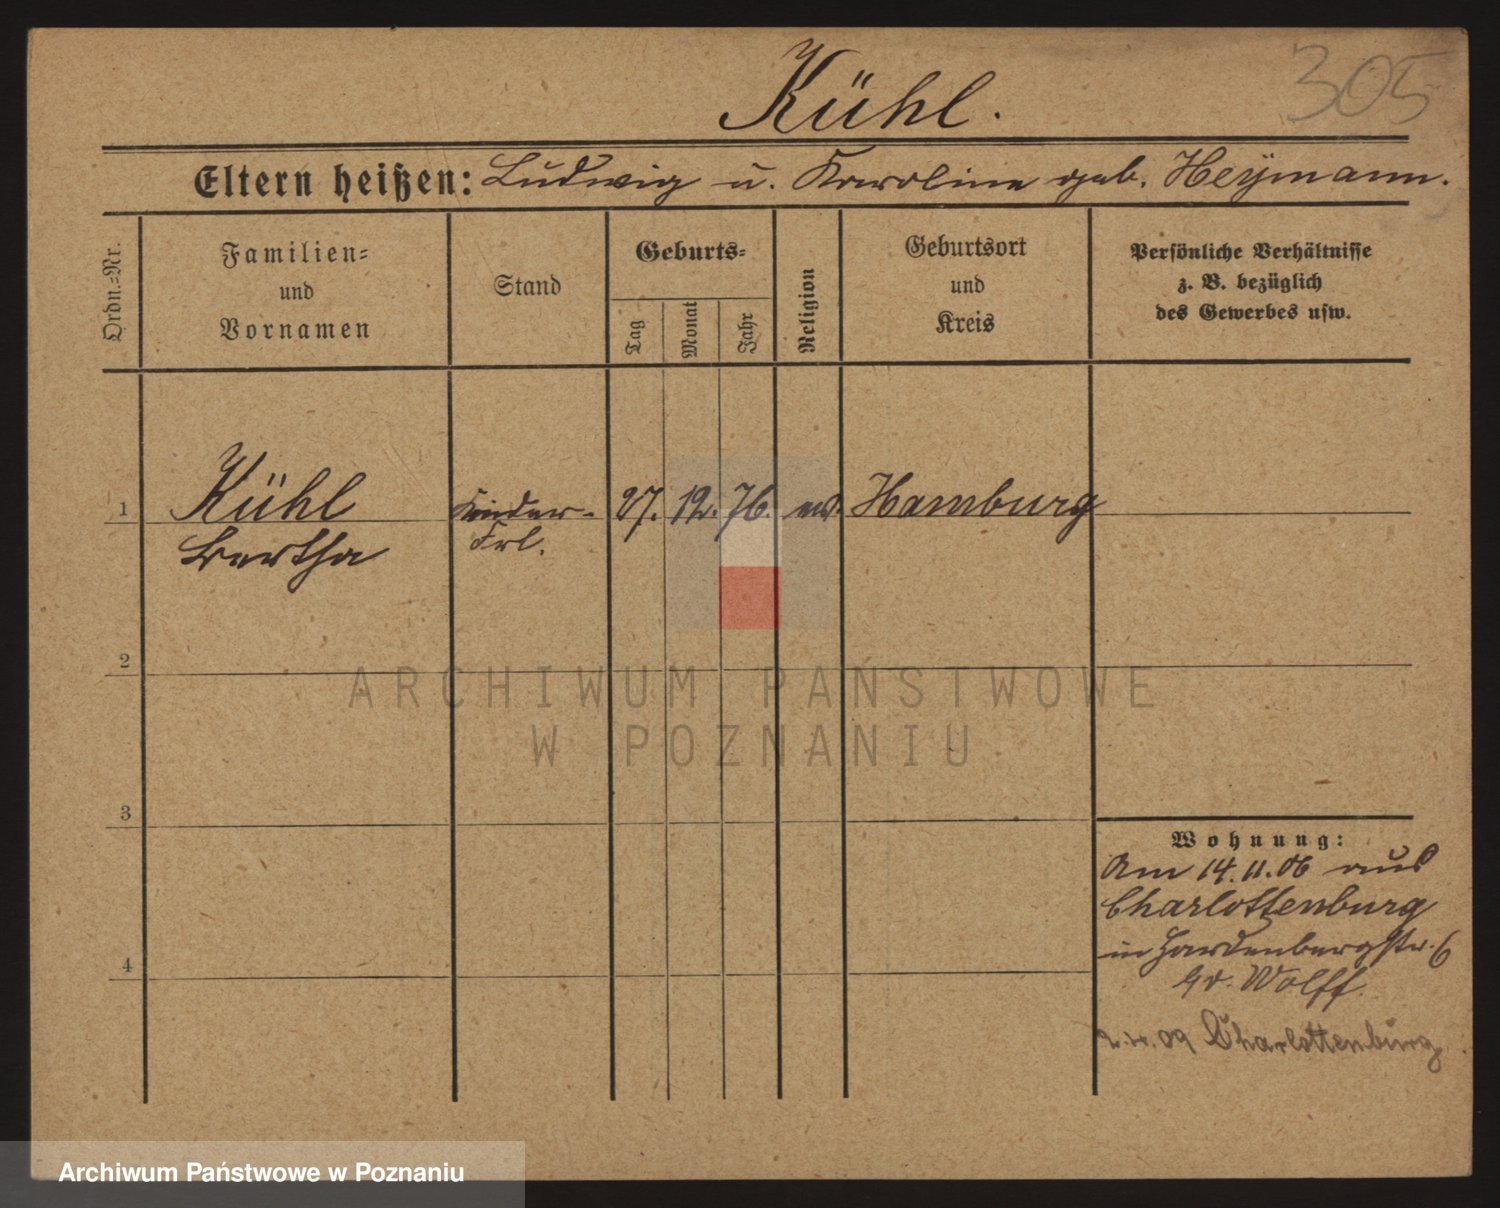 305
Kühl.
Eltern heißen: Ludwig u. Karoline geb. Heymann.
Ordn.=Nr.
Familien=
und
Vornamen
Stand
Geburts=
Tag
Monat
Jahr
Religion
Geburtsort
und
Kreis
Persönliche Verhältnisse
z. B. bezüglich
des Gewerbes usw.
1
Kühl
Bertha
Kinder-
Frl.
27. 12. 76. ev. Hamburg
2
ARCHIWUM PAŃSTWOWE
W POZNANIU
3
4
Wohnung:
Am 14.11.06 aus
Charlottenburg
in Hardenbergstr. 6
Wolff.
09 Charlottenburg
Archiwum Państwowe w Poznaniu